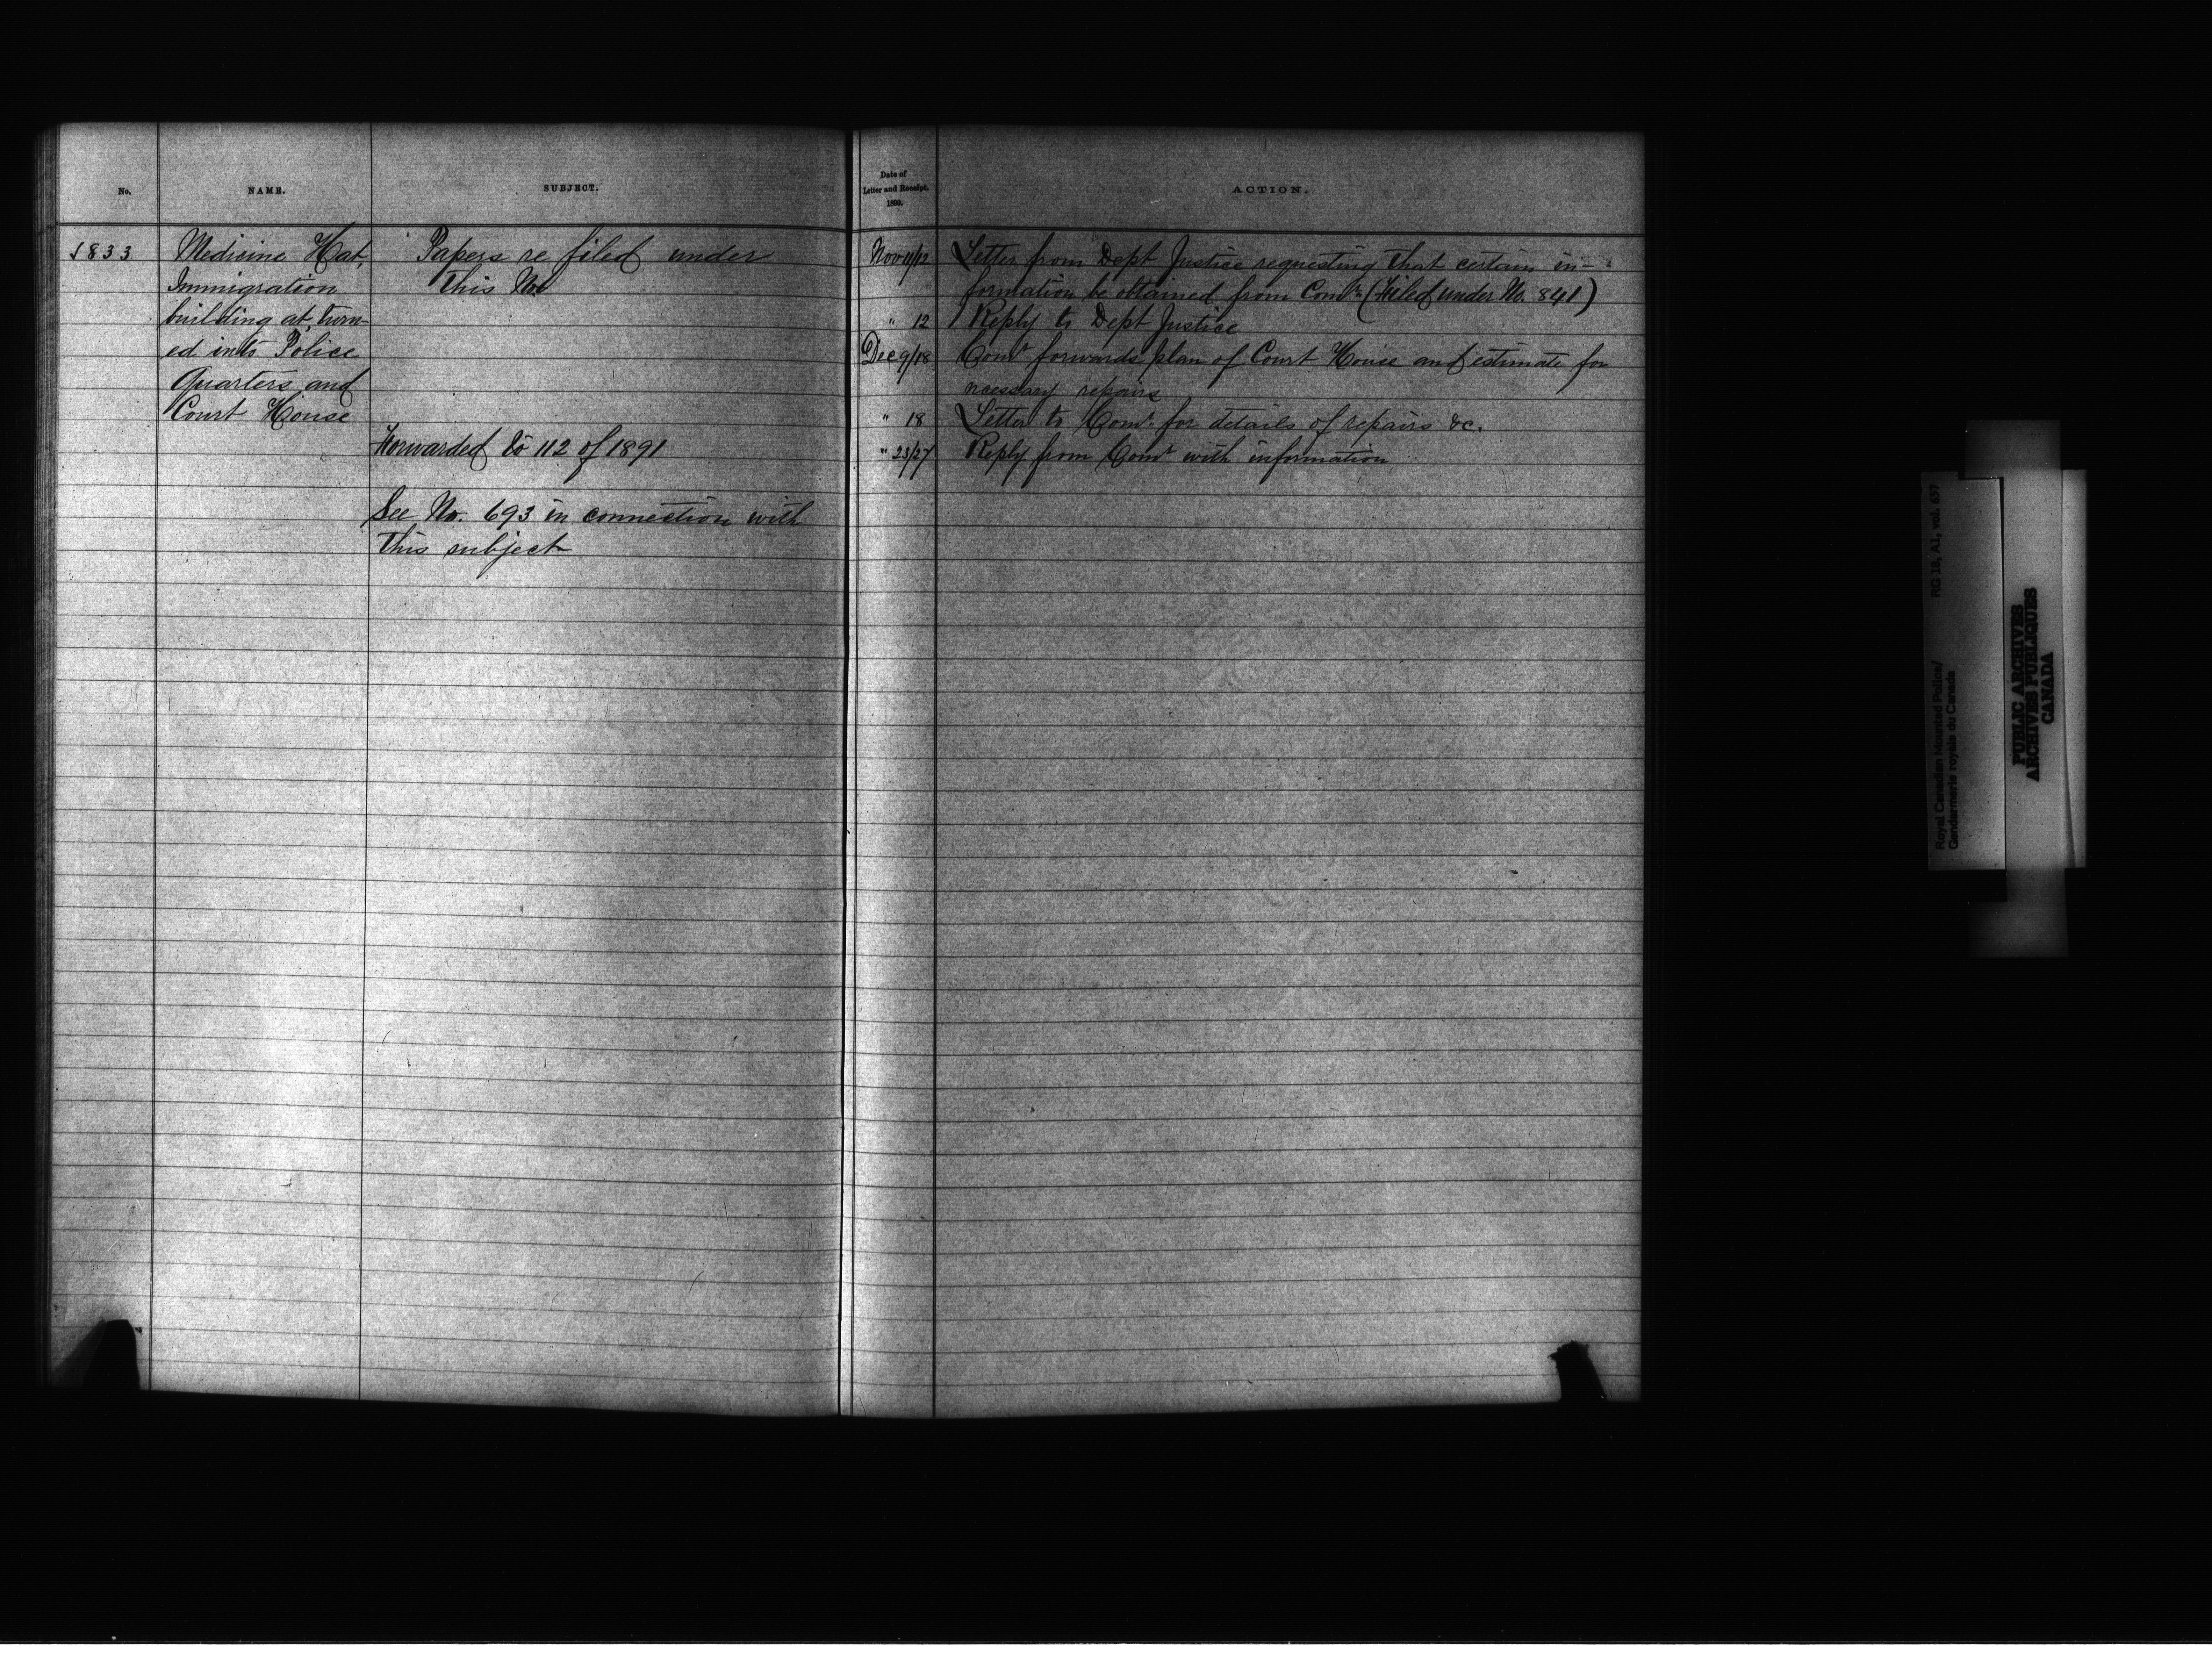 No.
NAME.
SUBJECT.
1833
Medicine Hat,
Immigration
building at, turn-
ed into Police
Quarters and
Court House
Papers re filed under
this No.
Forwarded to 112 of 1891
See No. 693 in connection with
this subject
Date of
Letter and Receipt.
1890.
ACTION.
Nov 11/12 Letter from Dept Justice requesting that certain in-
formation be obtained from Comr. (Filed under No. 841)
" 12 Reply to Dept Justice
Dec 9/18 Comr forwards plan of Court House and estimate for
necessary repairs
" 18 Letter to Comr. for details of repairs &c.
" 23/27 Reply from Comr with information
Royal Canadian Mounted Police/
Gendarmerie royale du Canada
RG 18, A1, vol. 657
PUBLIC ARCHIVES
ARCHIVES PUBLIQUES
CANADA